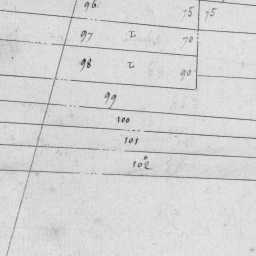 96 75 75
97 I 70
98 I 90
99
100
101
102